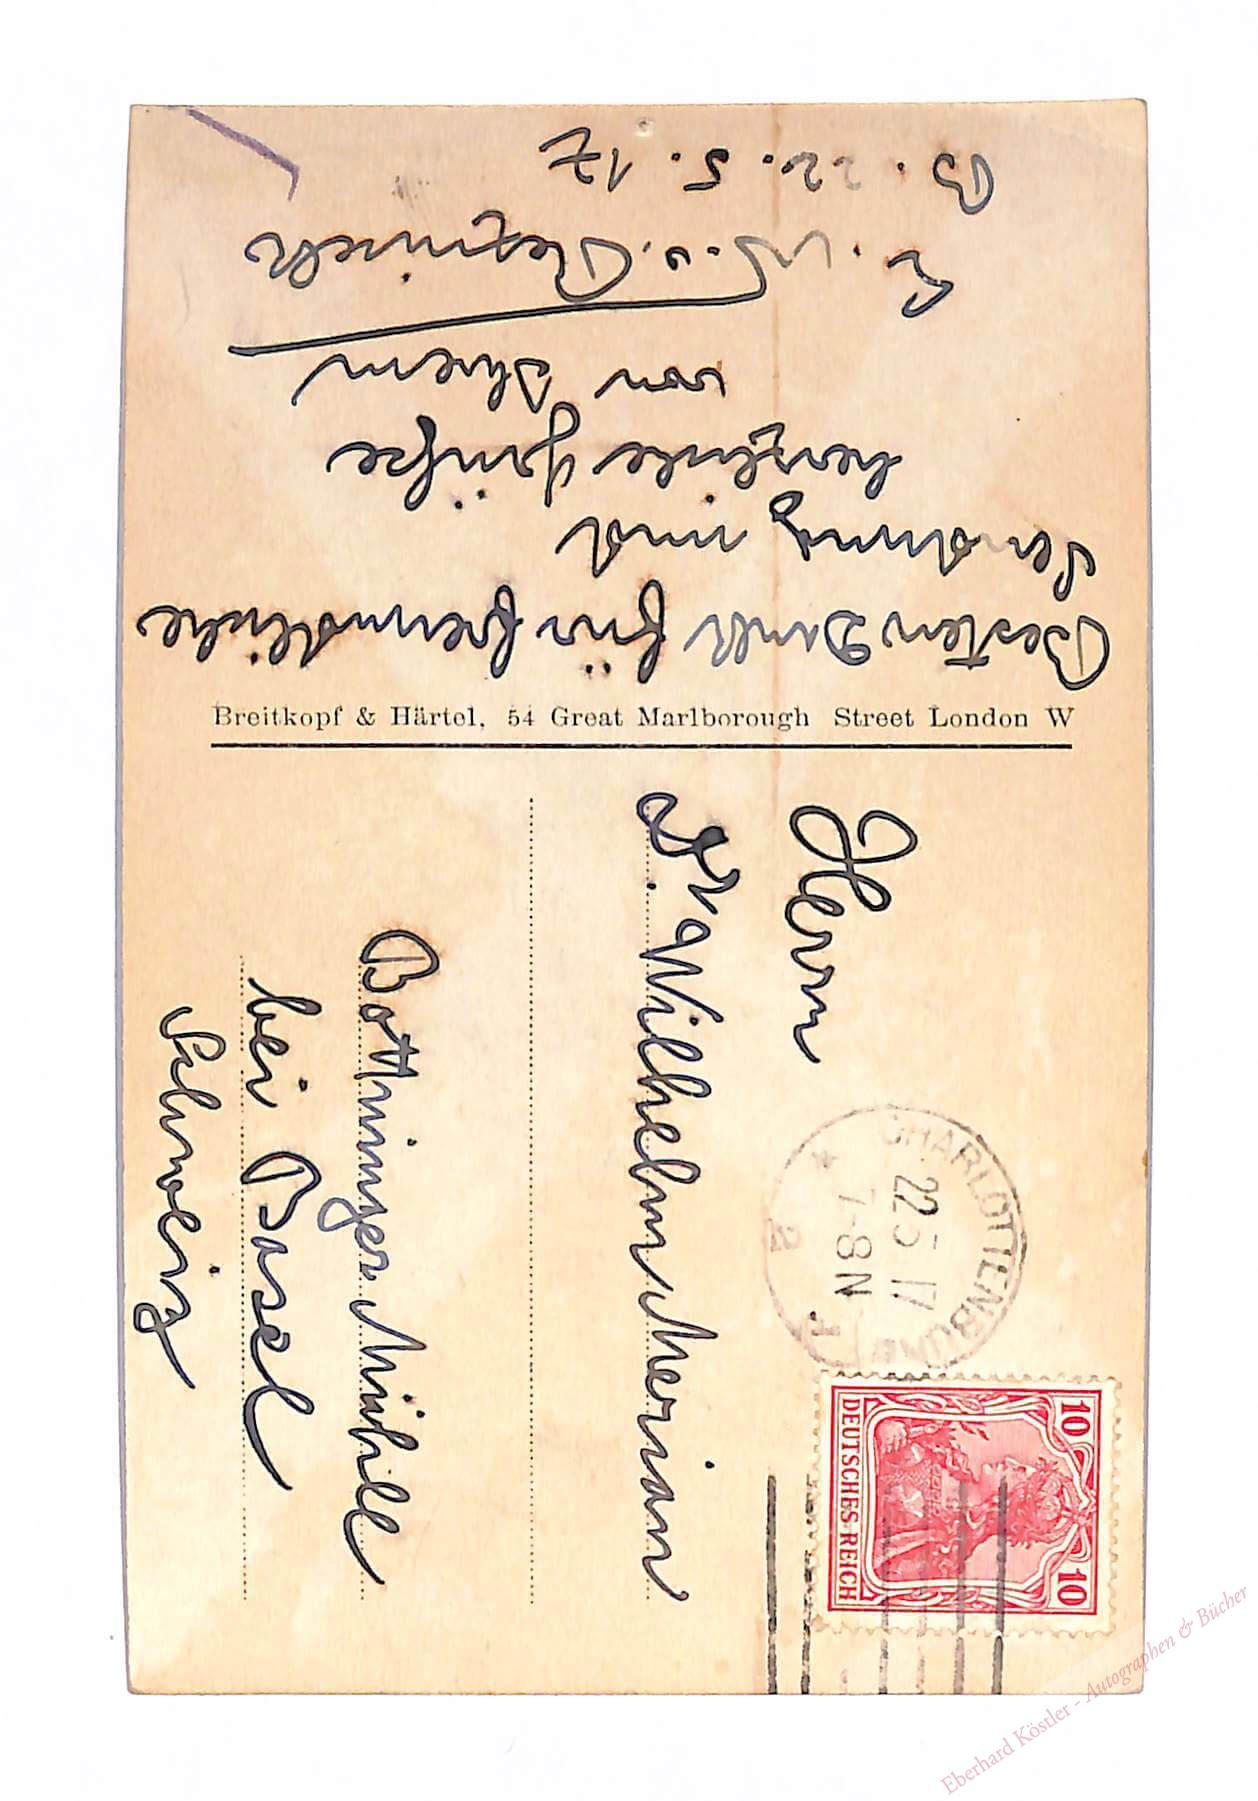 Besten Dank für freundliche
Sendung und
herzliche Grüße
von Ihrem
E. N. v. Reznicek
B. 22. 5. 17
Breitkopf & Härtel, 54 Great Marlborough Street London W
Herrn
Dr. Wilhelm Merian
Bottminger Mühle
bei Basel
Schweiz
CHARLOTTENBURG
22 5 17
7-8 N
* 2
10 10
DEUTSCHES REICH
Eberhard Köstler - Autographen & Bücher